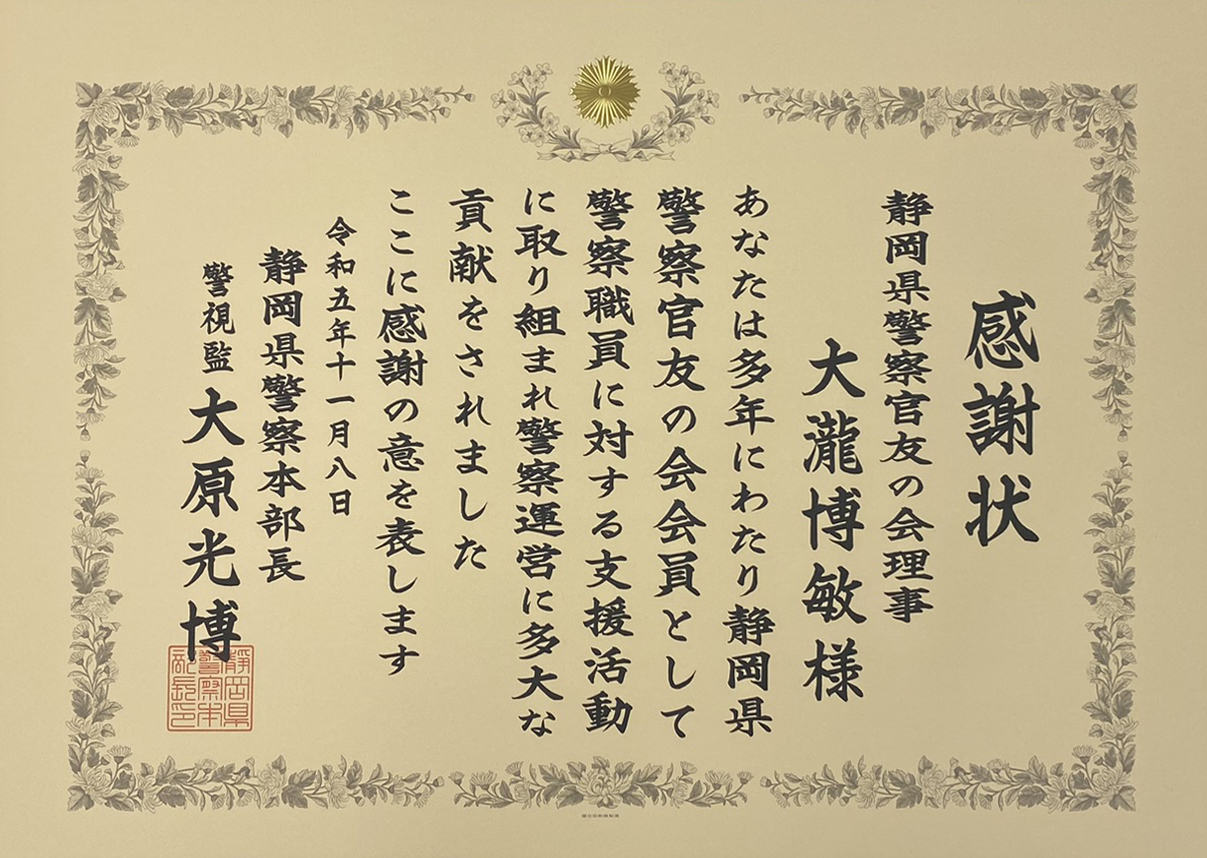 感謝状
静岡県警察官友の会理事
大瀧博敏様
あなたは多年にわたり静岡県
警察官友の会会員として
警察職員に対する支援活動
に取り組まれ警察運営に多大な
貢献をされました
ここに感謝の意を表します
令和五年十一月八日
静岡県警察本部長
警視監 大原光博
静岡県
警察本
部長印